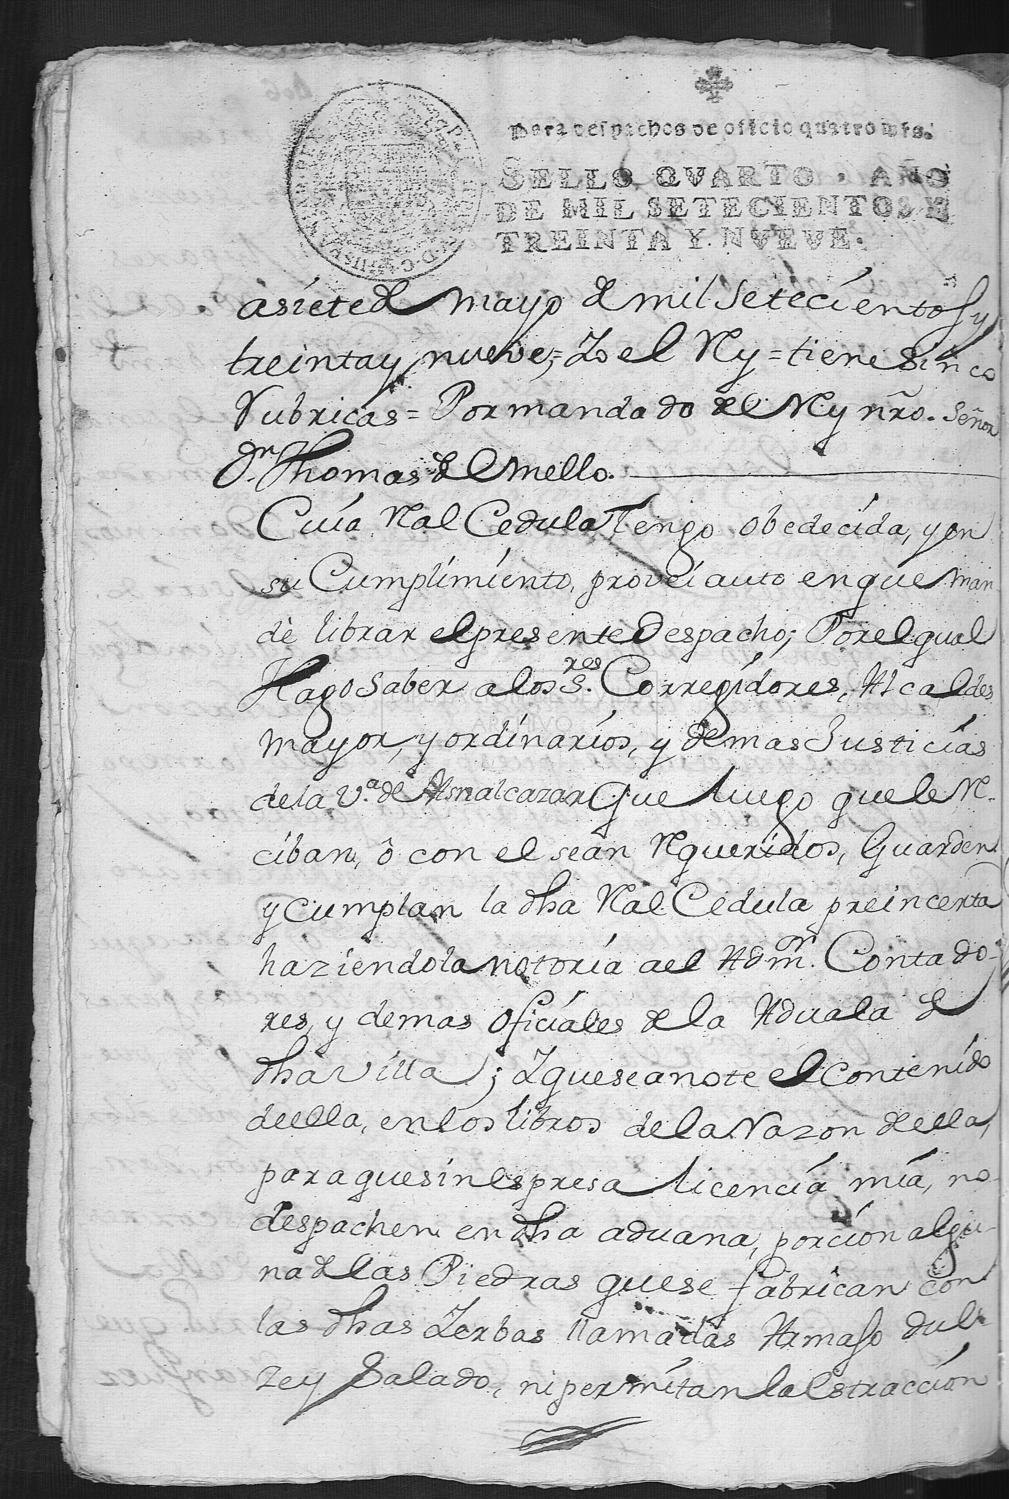 Para despachos de oficio quatro mrs.
SELLO QVARTO, AÑO
DE MIL SETECIENTOS Y
TREINTA Y NVEVE.
asiete de mayo de mil setecientos y
treinta y nueve; Yo el Rey = tiene sinco
Rubricas = Por mandado del Rey nro. Señor
Dn. Thomas de Emello.
Cuia Real Cedula Tengo obedecida, y en
su Cumplimiento, proveí auto en que man
dè librar el presente Despacho; Por el qual
Hago saber a los S.res Corregidores, Alcaldes
mayor, y ordinarios, y demas Justicias
de la V.a de Asnalcazar Que luego que le Re-
ciban, ô con el sean Requeridos, Guarden
y Cumplan la dha Real Cedula preincerta
haziendola notoria a el Adm.or Contado-
res, y demas Oficiales de la Aduala de
dha villa; Y que se anote el Contenido
de ella, en los libros de la Razon de ella,
para que sin espresa licencia mia, no
despachen en dha aduana, porcion algu-
na de las Piedras que se fabrican con
las dhas Yerbas llamadas Armaso dul-
ze y Salado, ni permitan la Estraccion